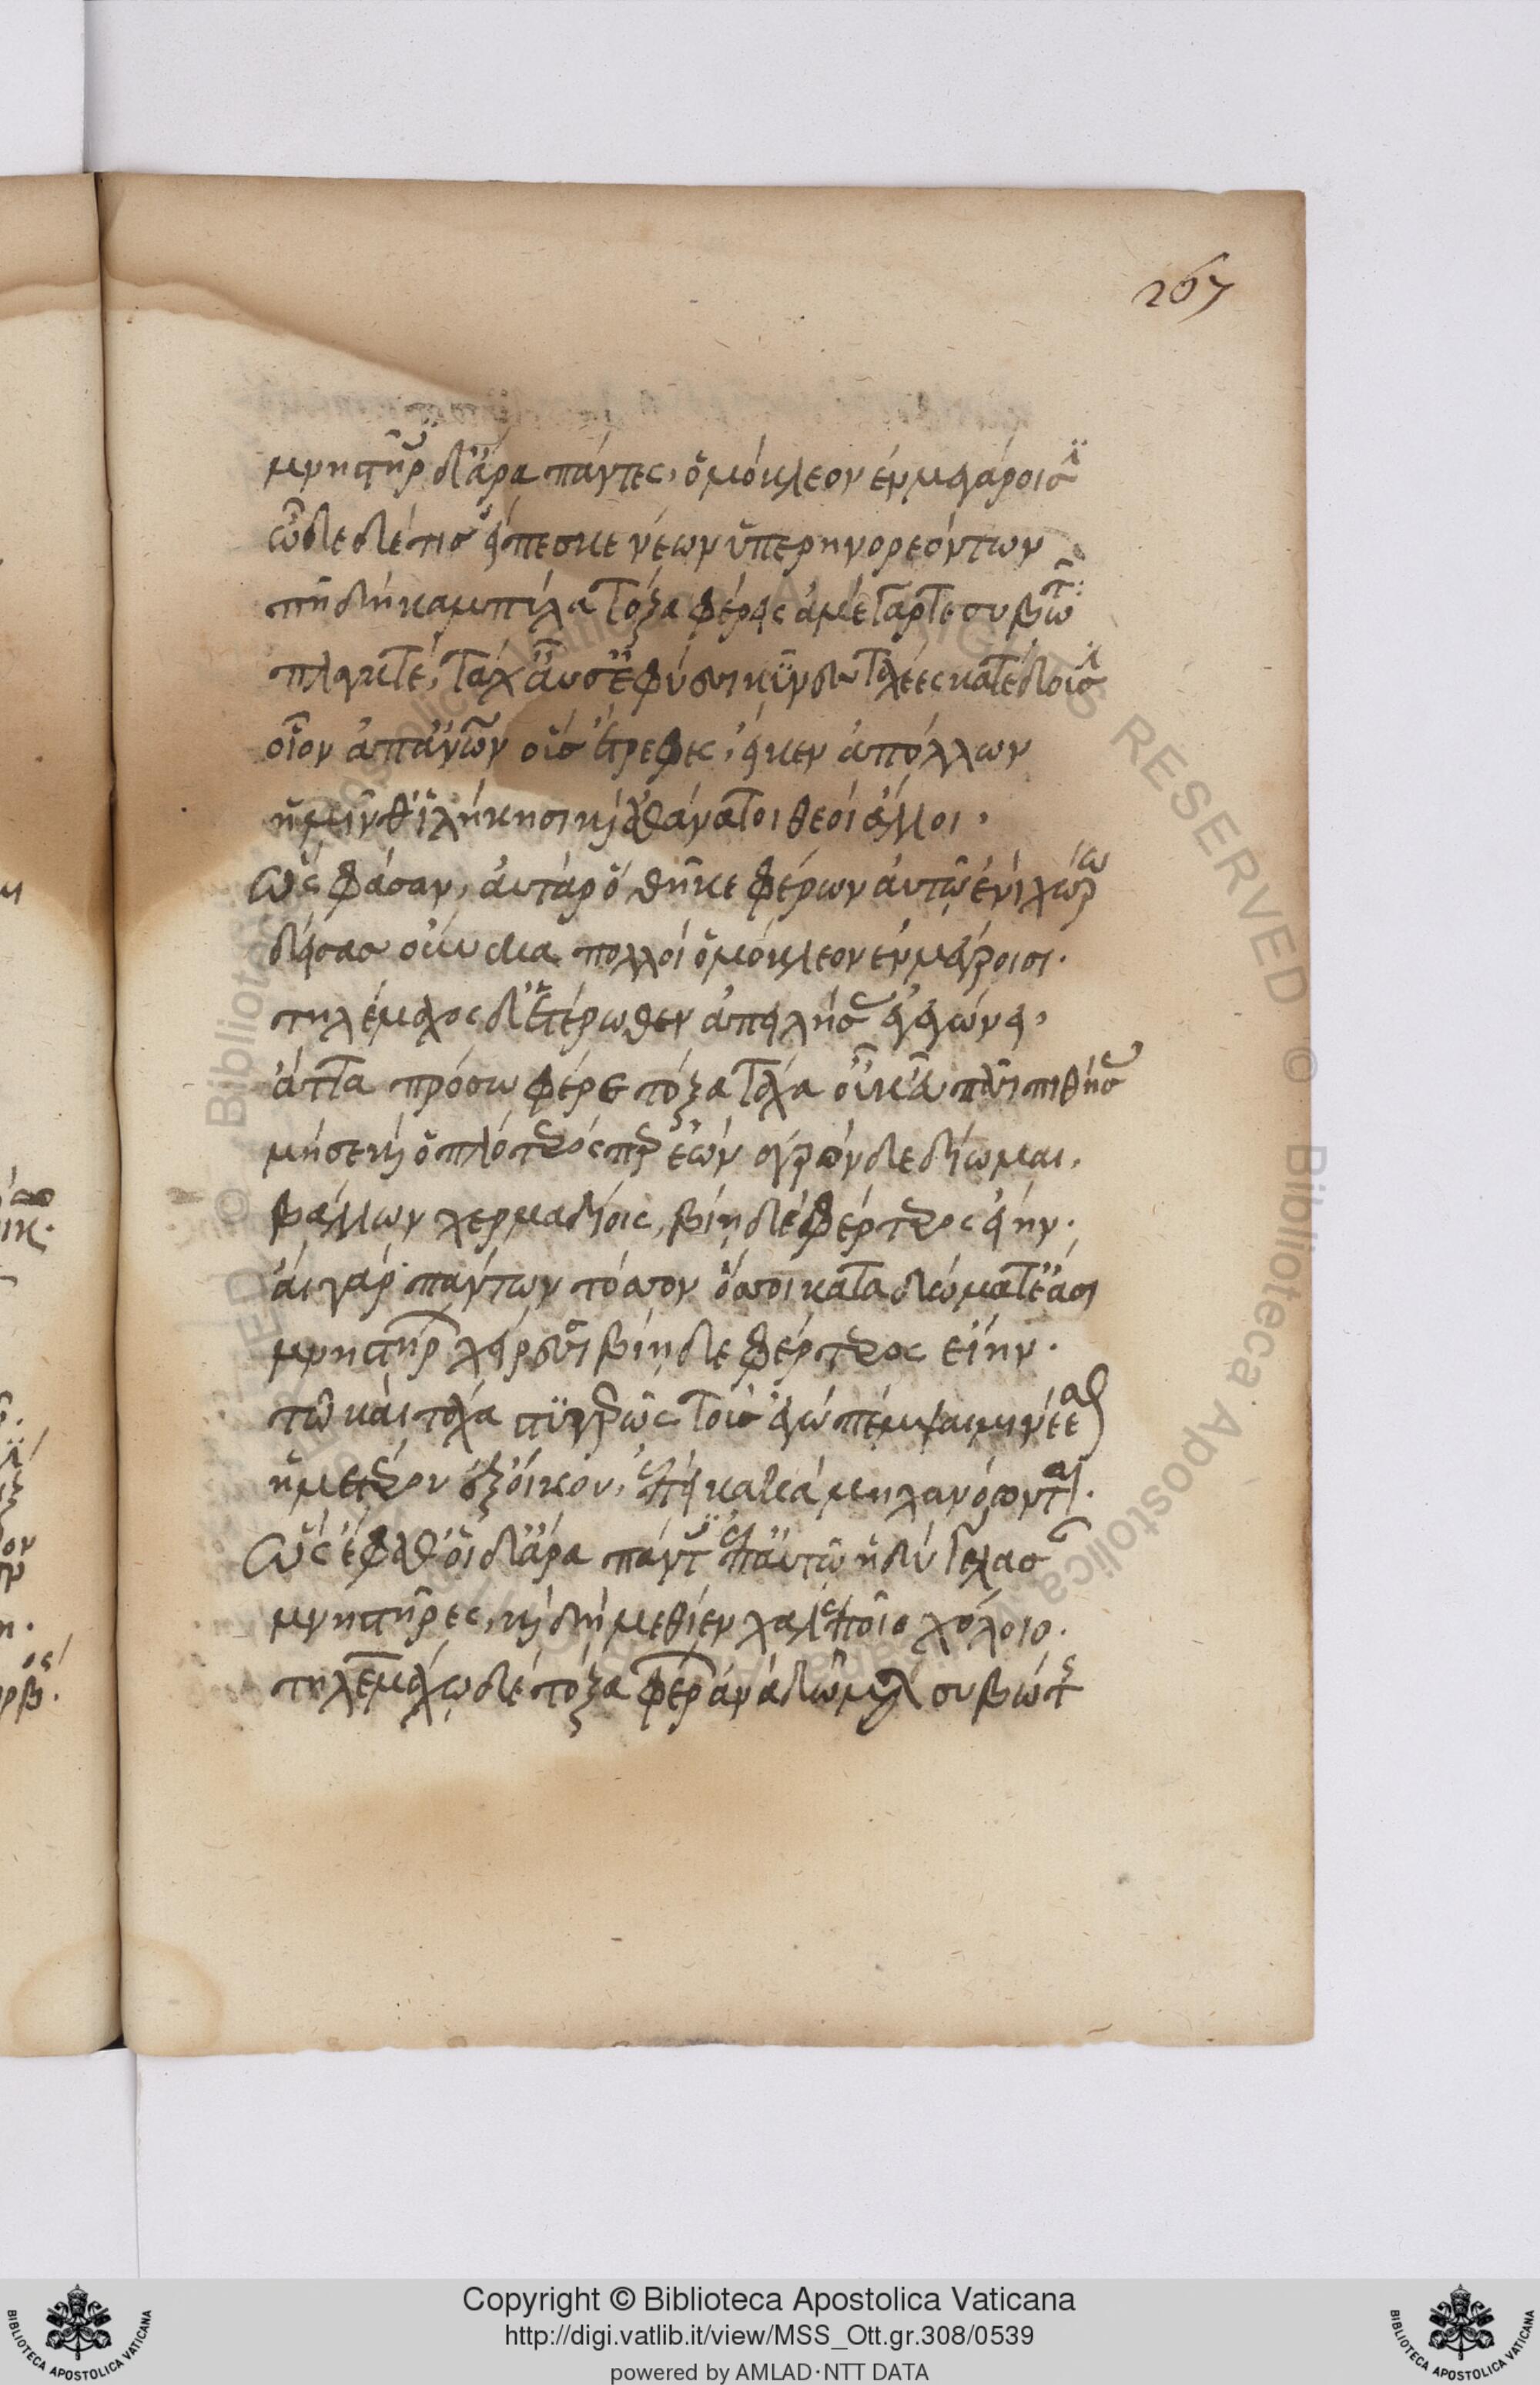 267
μνηστῆρες δ' ἄρα πάντες, ὁμόκλεον ἐν μεγάροισι
ὧδε δέ τισ εἴπεσκε νέων ὑπερηνορεόντων
πῆ δὴ καμπύλα τόξα φέρεις ἀμέγαρτε συβῶτα:
πλαγκτέ, τάχ' αὖ σ' ἐφ' ὕεσσι κύνες ταχέες κατέδονται
οἷον ἀπ' ἀνθρώπων οὓσ ἔτρεφες, εἴ κεν ἀπόλλων
ἡμῖν θ' ἱλήκησι καὶ ἀθάνατοι θεοὶ ἄλλοι.
ὣς φάσαν, αὐτὰρ ὃ θῆκε φέρων αὐτῶ ἐνὶ χώρω
δείσασ οὕνεκα πολλοὶ ὁμόκλεον ἐν μεγάροισι.
τηλέμαχος δ' ἑτέρωθεν ἀπειλήσας ἐγεγώνει,
ἄττα πρόσω φέρε τόξα τάχα οὐκ εὖ πᾶσι πιθήσεις
μή σε καὶ ὁπλότερός περ ἐὼν ἀγρόνδε δίωμαι,
βάλλων χερμαδίοις, βίη δὲ φέρτερος εἰμι.
αἲ γὰρ πάντων τόσσον ὅσσοι κατὰ δώματ' ἔασι
μνηστήρων χερσί τε βίη δὲ φέρτερος εἴην.
τῶ καὶ τάχα στυγερῶς τιν' ἐγὼ πέμψαιμι νέεσθαι
ἡμετέρου ἐξ οἴκου, ἐπεὶ κακὰ μηχανόωνται.
ὣς ἔφαθ' οἱ δ' ἄρα πάντες ἐπ' αὐτῶ ἡδὺ γέλασαν
μνηστῆρες, καὶ δὴ μέθιεν χαλεποῖο χόλοιο.
τηλεμάχω δὲ τόξα φέρων ἀνὰ δῶμα συβώτης
Copyright © Biblioteca Apostolica Vaticana
http://digi.vatlib.it/view/MSS_Ott.gr.308/0539
powered by AMLAD·NTT DATA